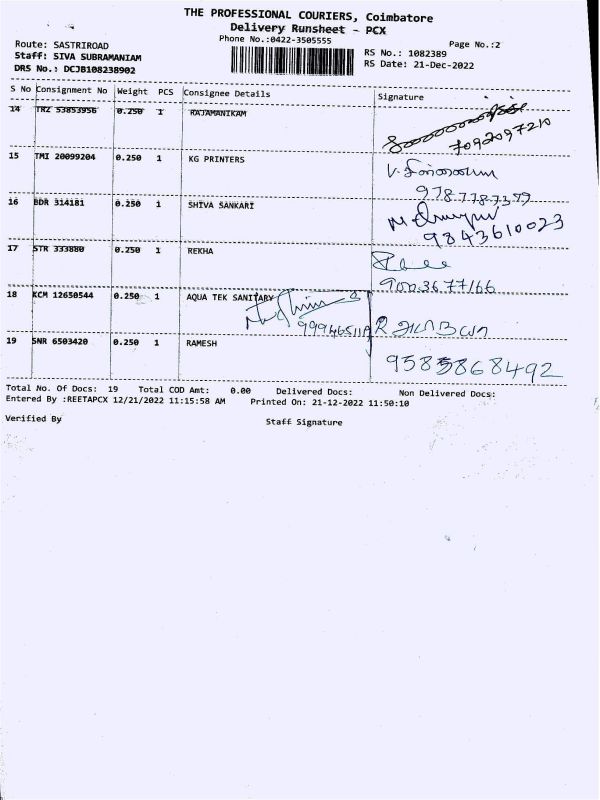 THE PROFESSIONAL COURIERS, Coimbatore
Delivery Runsheet - PCX
Phone No.:0422-3505555
Page No.:2
Route: SASTRIROAD
Staff: SIVA SUBRAMANIAM
DRS No.: DCJB108238902
RS No.: 1082389
RS Date: 21-Dec-2022
S No Consignment No Weight PCS Consignee Details Signature
14 TRZ 53853956 0.250 1 RAJAMANIKAM
7092097210
15 TMI 20099204 0.250 1 KG PRINTERS
9787787379
16 BDR 314181 0.250 1 SHIVA SANKARI
9843610023
17 STR 333880 0.250 1 REKHA
18 KCM 12650544 0.250 1 AQUA TEK SANITARY
19 SNR 6503420 0.250 1 RAMESH
9585868492
Total No. Of Docs: 19 Total COD Amt: 0.00 Delivered Docs: Non Delivered Docs:
Entered By :REETAPCX 12/21/2022 11:15:58 AM Printed On: 21-12-2022 11:50:10
Verified By
Staff Signature